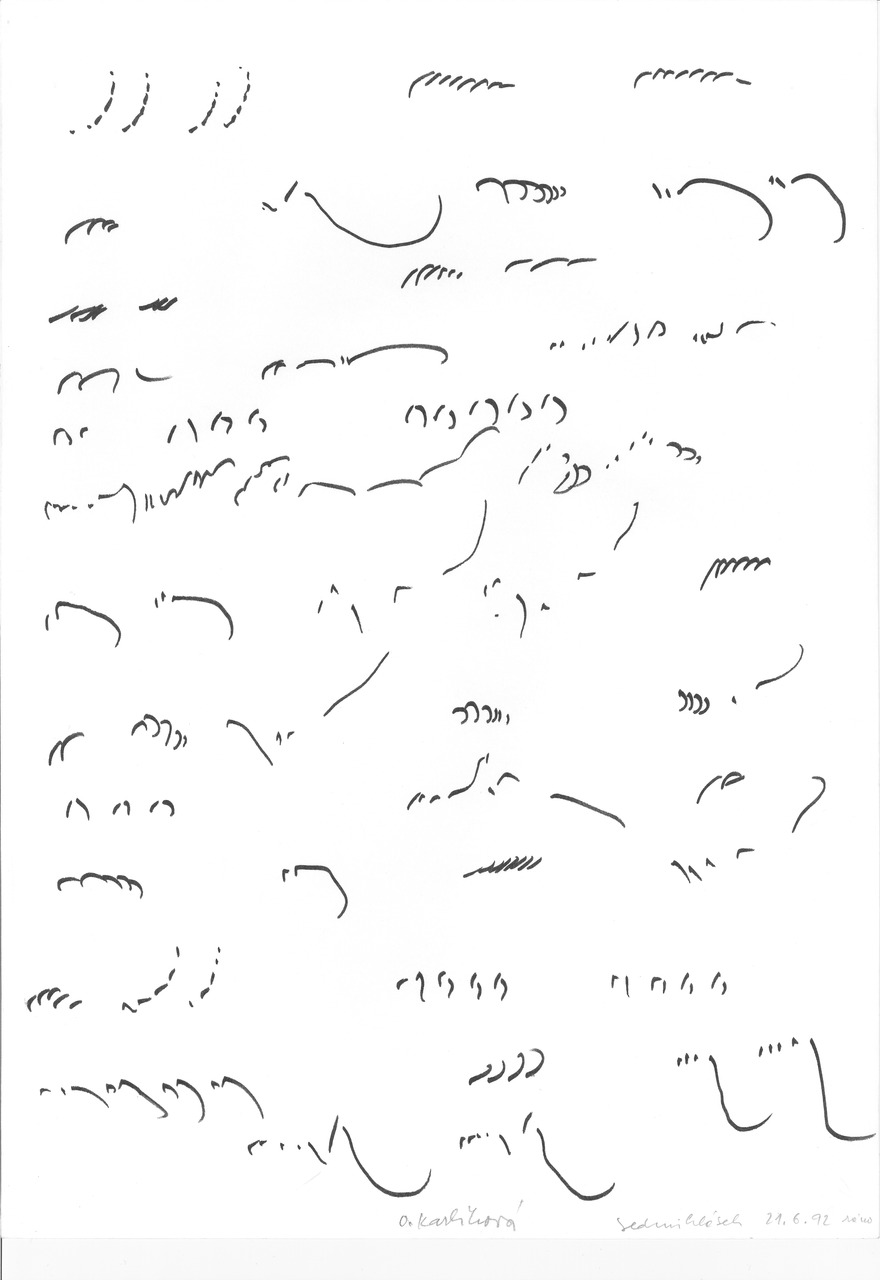 O. Karlíková Sedmihlásek 21.6.92 ráno